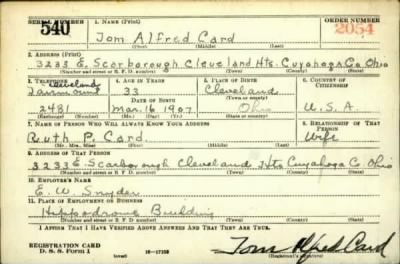 SERIAL NUMBER 1. NAME (Print) ORDER NUMBER
540 Tom Alfred Card 2054
(First) (Middle) (Last)
2. ADDRESS (Print)
3233 E. Scorborough Cleveland Hts. Cuyahoga Co. Ohio
(Number and street or R. F. D. number) (Town) (County) (State)
3. TELEPHONE 4. AGE IN YEARS 5. PLACE OF BIRTH 6. COUNTRY OF CITIZENSHIP
Cleveland 33 Cleveland
DATE OF BIRTH (Town or county)
2481 Mar. 16 1907 Ohio U.S.A.
(Exchange) (Number) (Mo.) (Day) (Yr.) (State or country)
7. NAME OF PERSON WHO WILL ALWAYS KNOW YOUR ADDRESS 8. RELATIONSHIP OF THAT PERSON
Ruth P. Card Wife
(Mr., Mrs., Miss) (First) (Middle) (Last)
9. ADDRESS OF THAT PERSON
3233 E. Scarborough Cleveland Hts Cuyahoga C Ohio
(Number and street or R. F. D. number) (Town) (County) (State)
10. EMPLOYER'S NAME
E. W. Snyder
11. PLACE OF EMPLOYMENT OR BUSINESS
Hippodrome Building
(Number and street or R. F. D. number) (Town) (County) (State)
I AFFIRM THAT I HAVE VERIFIED ABOVE ANSWERS AND THAT THEY ARE TRUE.
REGISTRATION CARD
D. S. S. Form 1 (over) 16-17105 Tom Alfred Card
(Registrant's signature)